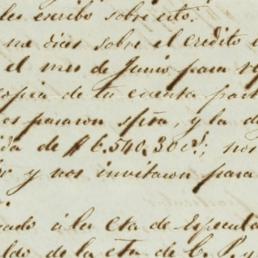 les escribo sobre esto.
me dices sobre el crédito
el mes de Junio para
copia de tu cuenta
pasaron spña, y la
da de $6.540.30cs; nos
y nos invitaron para
á la Cta de Especula
ldo de la cta de C. P. y